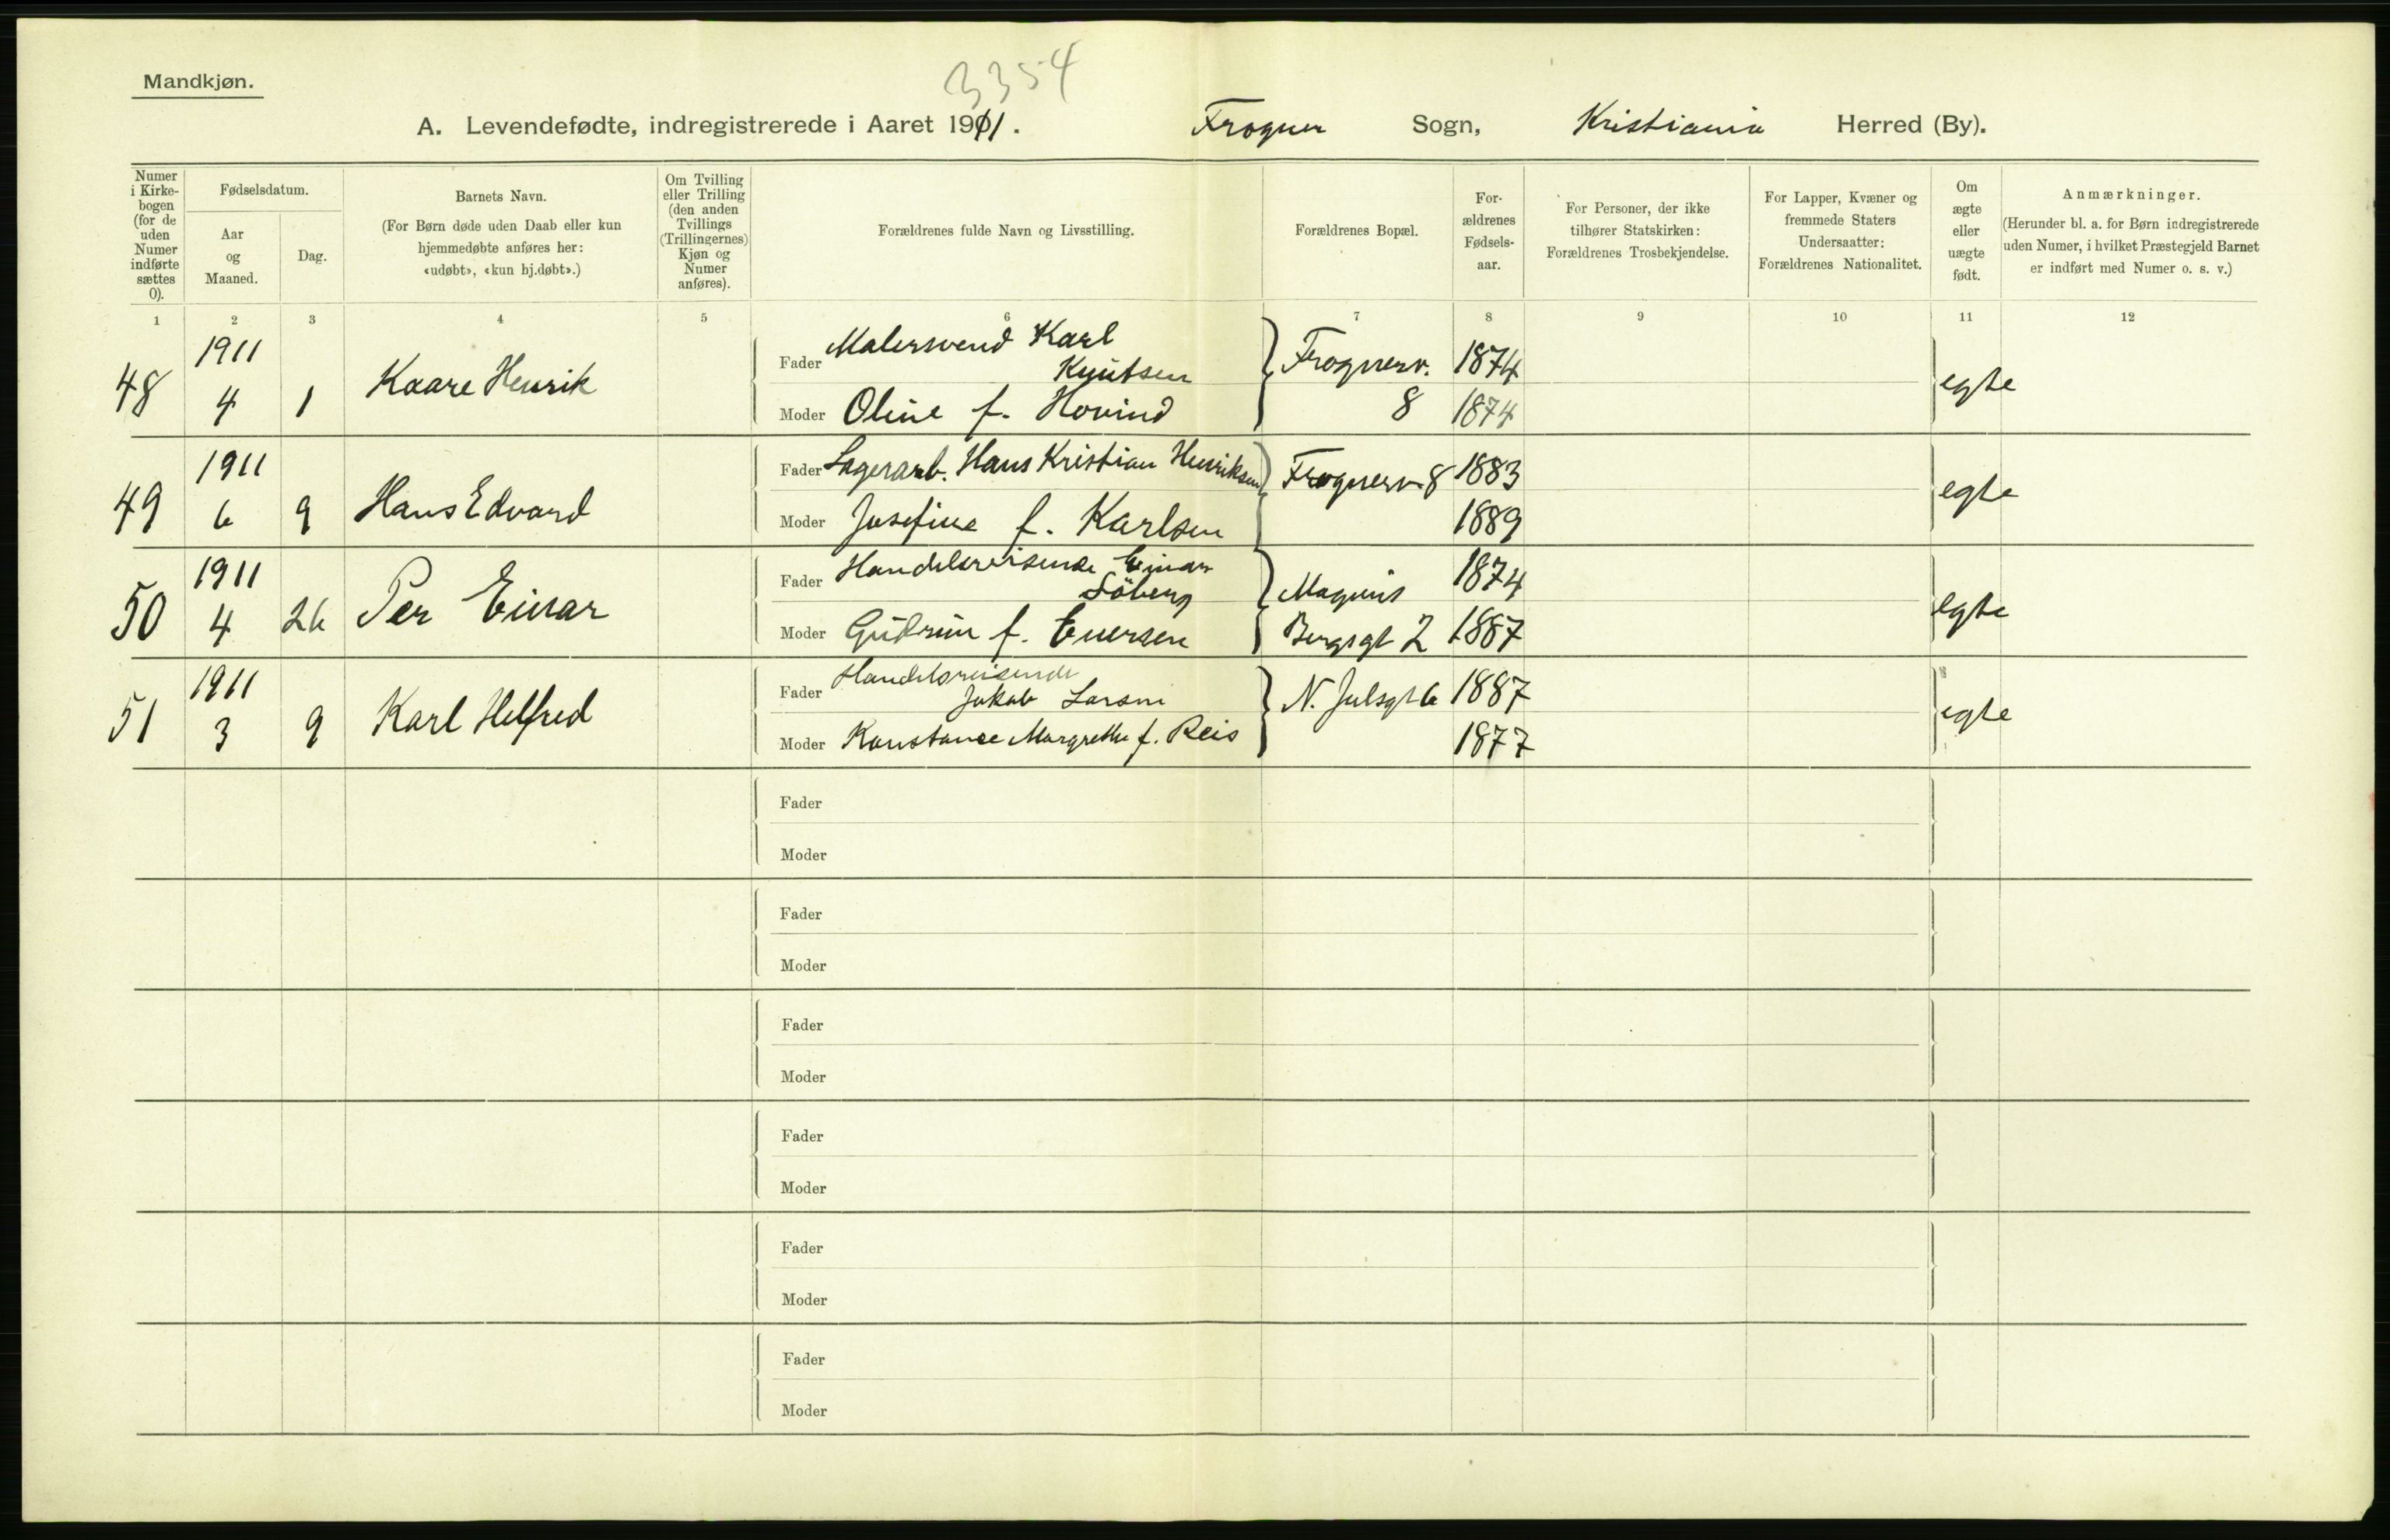 3354
Mandkjøn.
A. Levendefødte, indregistrerede i Aaret 1911. Frogner Sogn, Kristiania Herred (By).
Numer i Kirkebogen (for de uden Numer indførte sættes 0).
Fødselsdatum.
Aar og Maaned.
Dag.
Barnets Navn.
(For Børn døde uden Daab eller kun hjemmedøbte anføres her: «udøbt», «kun hj.døbt».)
Om Tvilling eller Trilling (den anden Tvillings (Trillingernes) Kjøn og Numer anføres).
Forældrenes fulde Navn og Livsstilling.
Forældrenes Bopæl.
Forældrenes Fødselsaar.
For Personer, der ikke tilhører Statskirken: Forældrenes Trosbekjendelse.
For Lapper, Kvæner og fremmede Staters Undersaatter: Forældrenes Nationalitet.
Om ægte eller uægte født.
Anmærkninger.
(Herunder bl. a. for Børn indregistrerede uden Numer, i hvilket Præstegjeld Barnet er indført med Numer o. s. v.)
1 2 3 4 5 6 7 8 9 10 11 12
48 1911 4 1 Kaare Henrik
Fader Malersvend Karl Knutsen Frognerv. 1874 egte
Moder Oline f. Hovind 8 1874
49 1911 6 9 Hans Edvard
Fader Lagerarb. Hans Kristian Henriksen Frognerv. 8 1883 egte
Moder Josefine f. Karlsen 1889
50 1911 4 26 Per Einar
Fader Handelsreisende Einar Söberg Magnus 1874 egte
Moder Gudrun f. Eversen Bergsgt 2 1887
51 1911 3 9 Karl Helfred
Fader Handelsreisende Jakob Larsen N. Julsgt 6 1887 egte
Moder Konstance Margrethe f. Reis 1877
Fader
Moder
Fader
Moder
Fader
Moder
Fader
Moder
Fader
Moder
Fader
Moder